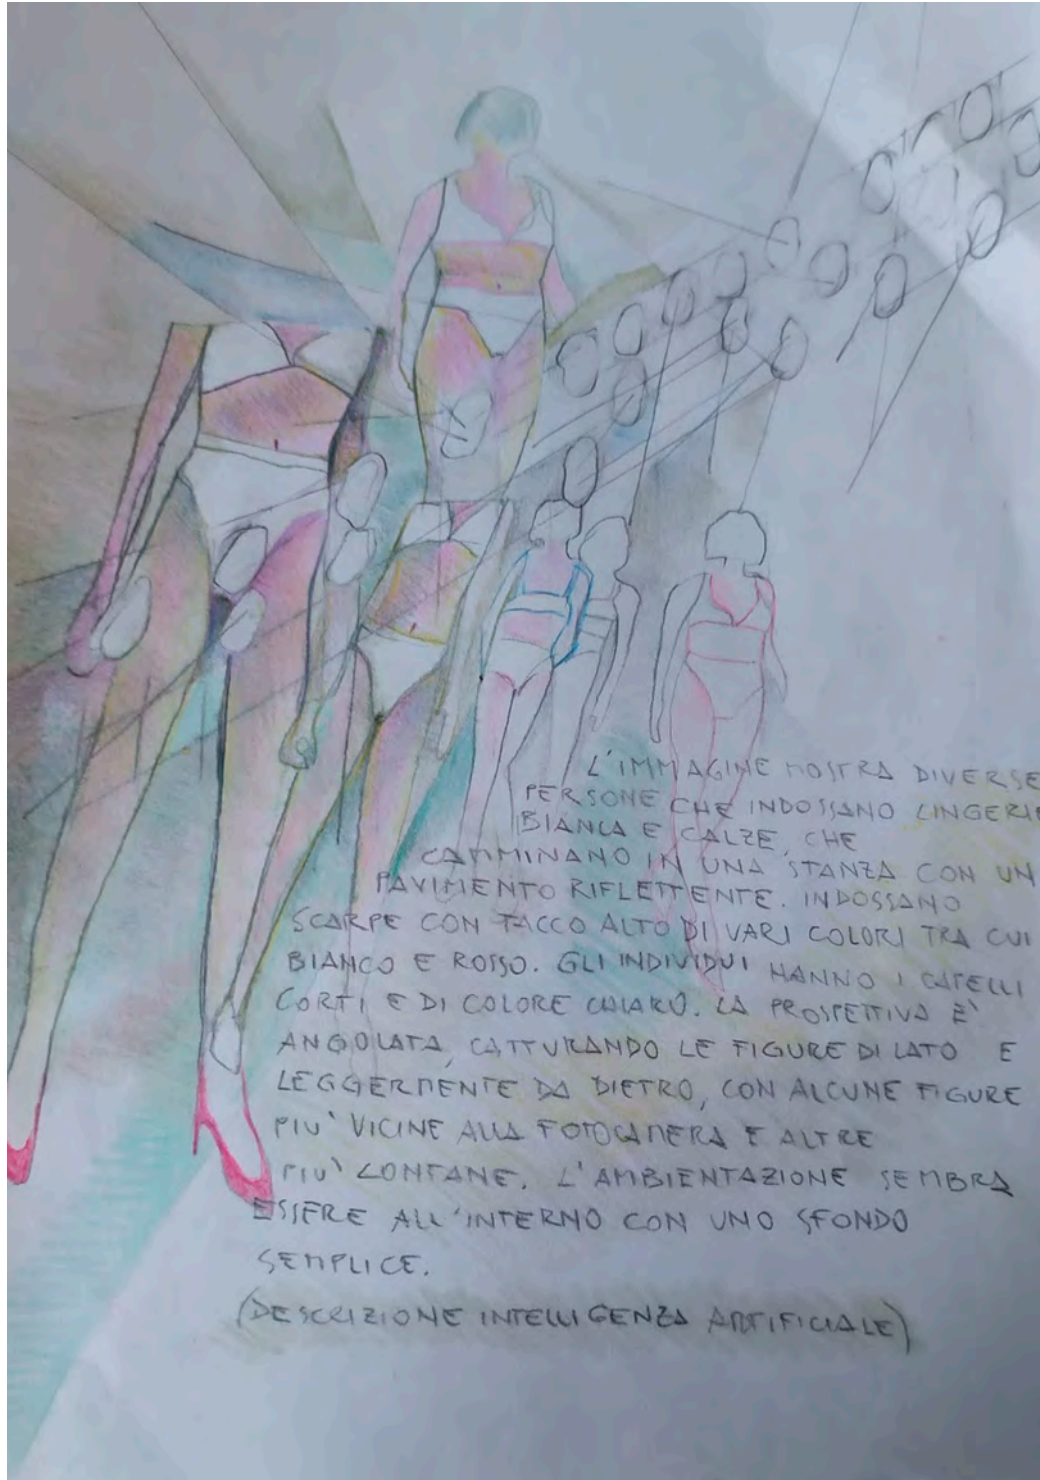 L'IMMAGINE MOSTRA DIVERSE
PERSONE CHE INDOSSANO LINGERIE
BIANCA E CALZE, CHE
CAMMINANO IN UNA STANZA CON UN
PAVIMENTO RIFLETTENTE. INDOSSANO
SCARPE CON TACCO ALTO DI VARI COLORI TRA CUI
BIANCO E ROSSO. GLI INDIVIDUI HANNO I CAPELLI
CORTI E DI COLORE CHIARO. LA PROSPETTIVA E'
ANGOLATA, CATTURANDO LE FIGURE DI LATO E
LEGGERMENTE DA DIETRO, CON ALCUNE FIGURE
PIU' VICINE ALLA FOTOCAMERA E ALTRE
PIU' LONTANE. L'AMBIENTAZIONE SEMBRA
ESSERE ALL'INTERNO CON UNO SFONDO
SEMPLICE.
(DESCRIZIONE INTELLIGENZA ARTIFICIALE)